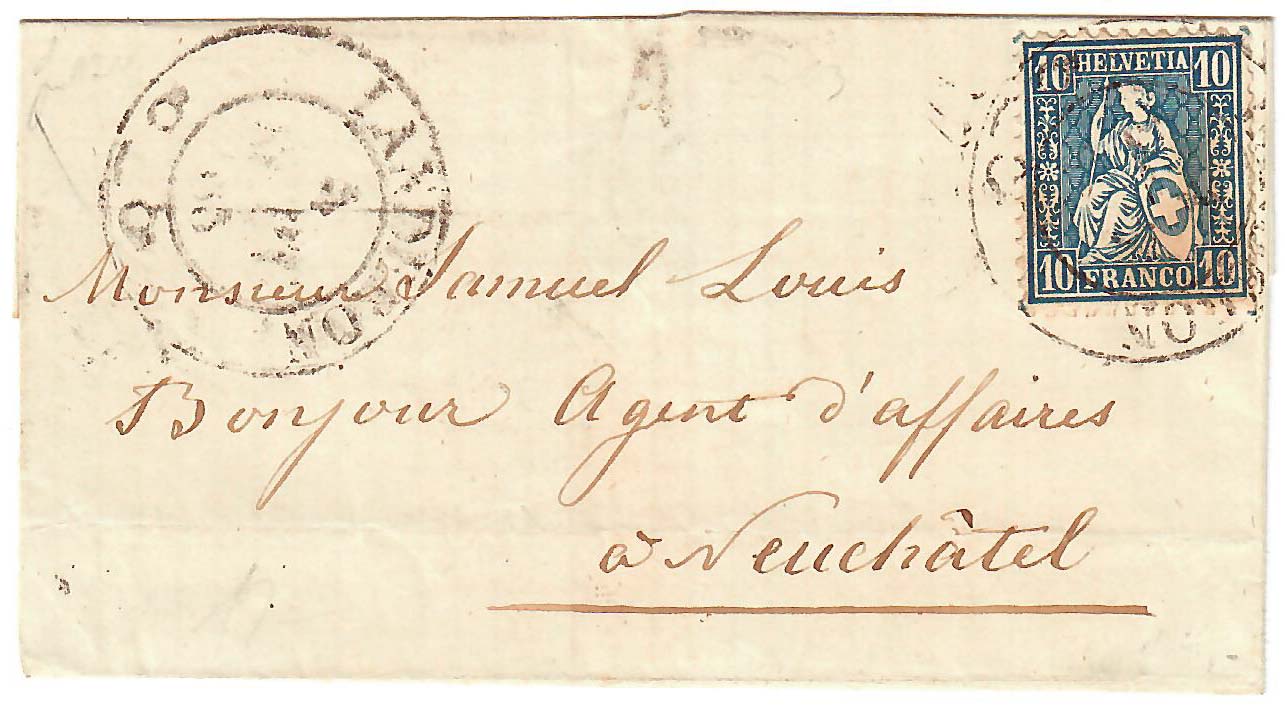 LANDERON
10 HELVETIA 10
10 FRANCO 10
ON
Monsieur Samuel Louis
Bonjour Agent d'affaires
à Neuchâtel